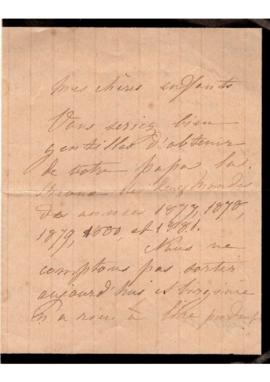 mes chères enfants
Vous seriez bien
gentilles d'obtenir
de votre papa la
des années 1877, 1878,
1879, 1800, et 1881.
Nous ne
comptons pas sortir
aujourd'hui et
n'a rien à